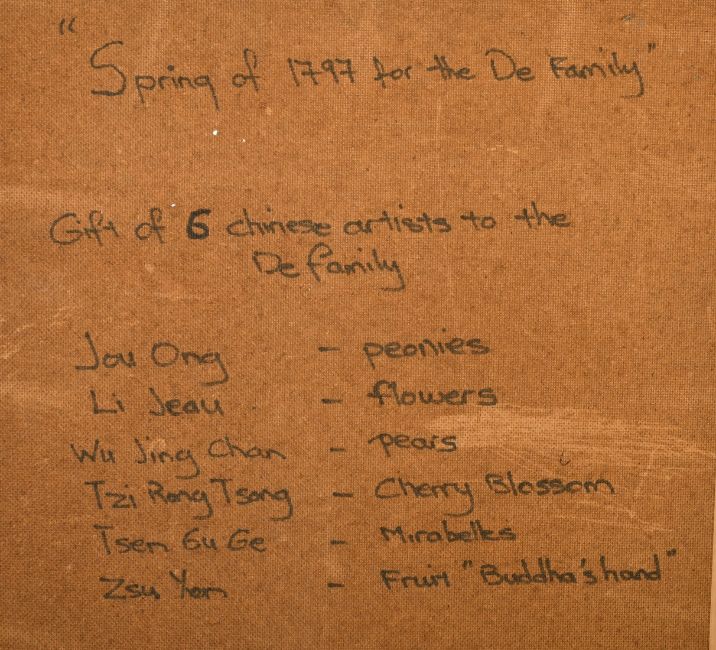 "
"Spring of 1797 for the De Family"
Gift of 6 chinese artists to the
De family
Jou Ong - peonies
Li Jeau - flowers
Wu Jing Chan - pears
Tzi Rong Tsong - Cherry Blossom
Tsen Gu Ge - Mirabelles
Zsu Yon - Fruit "Buddha's hand"